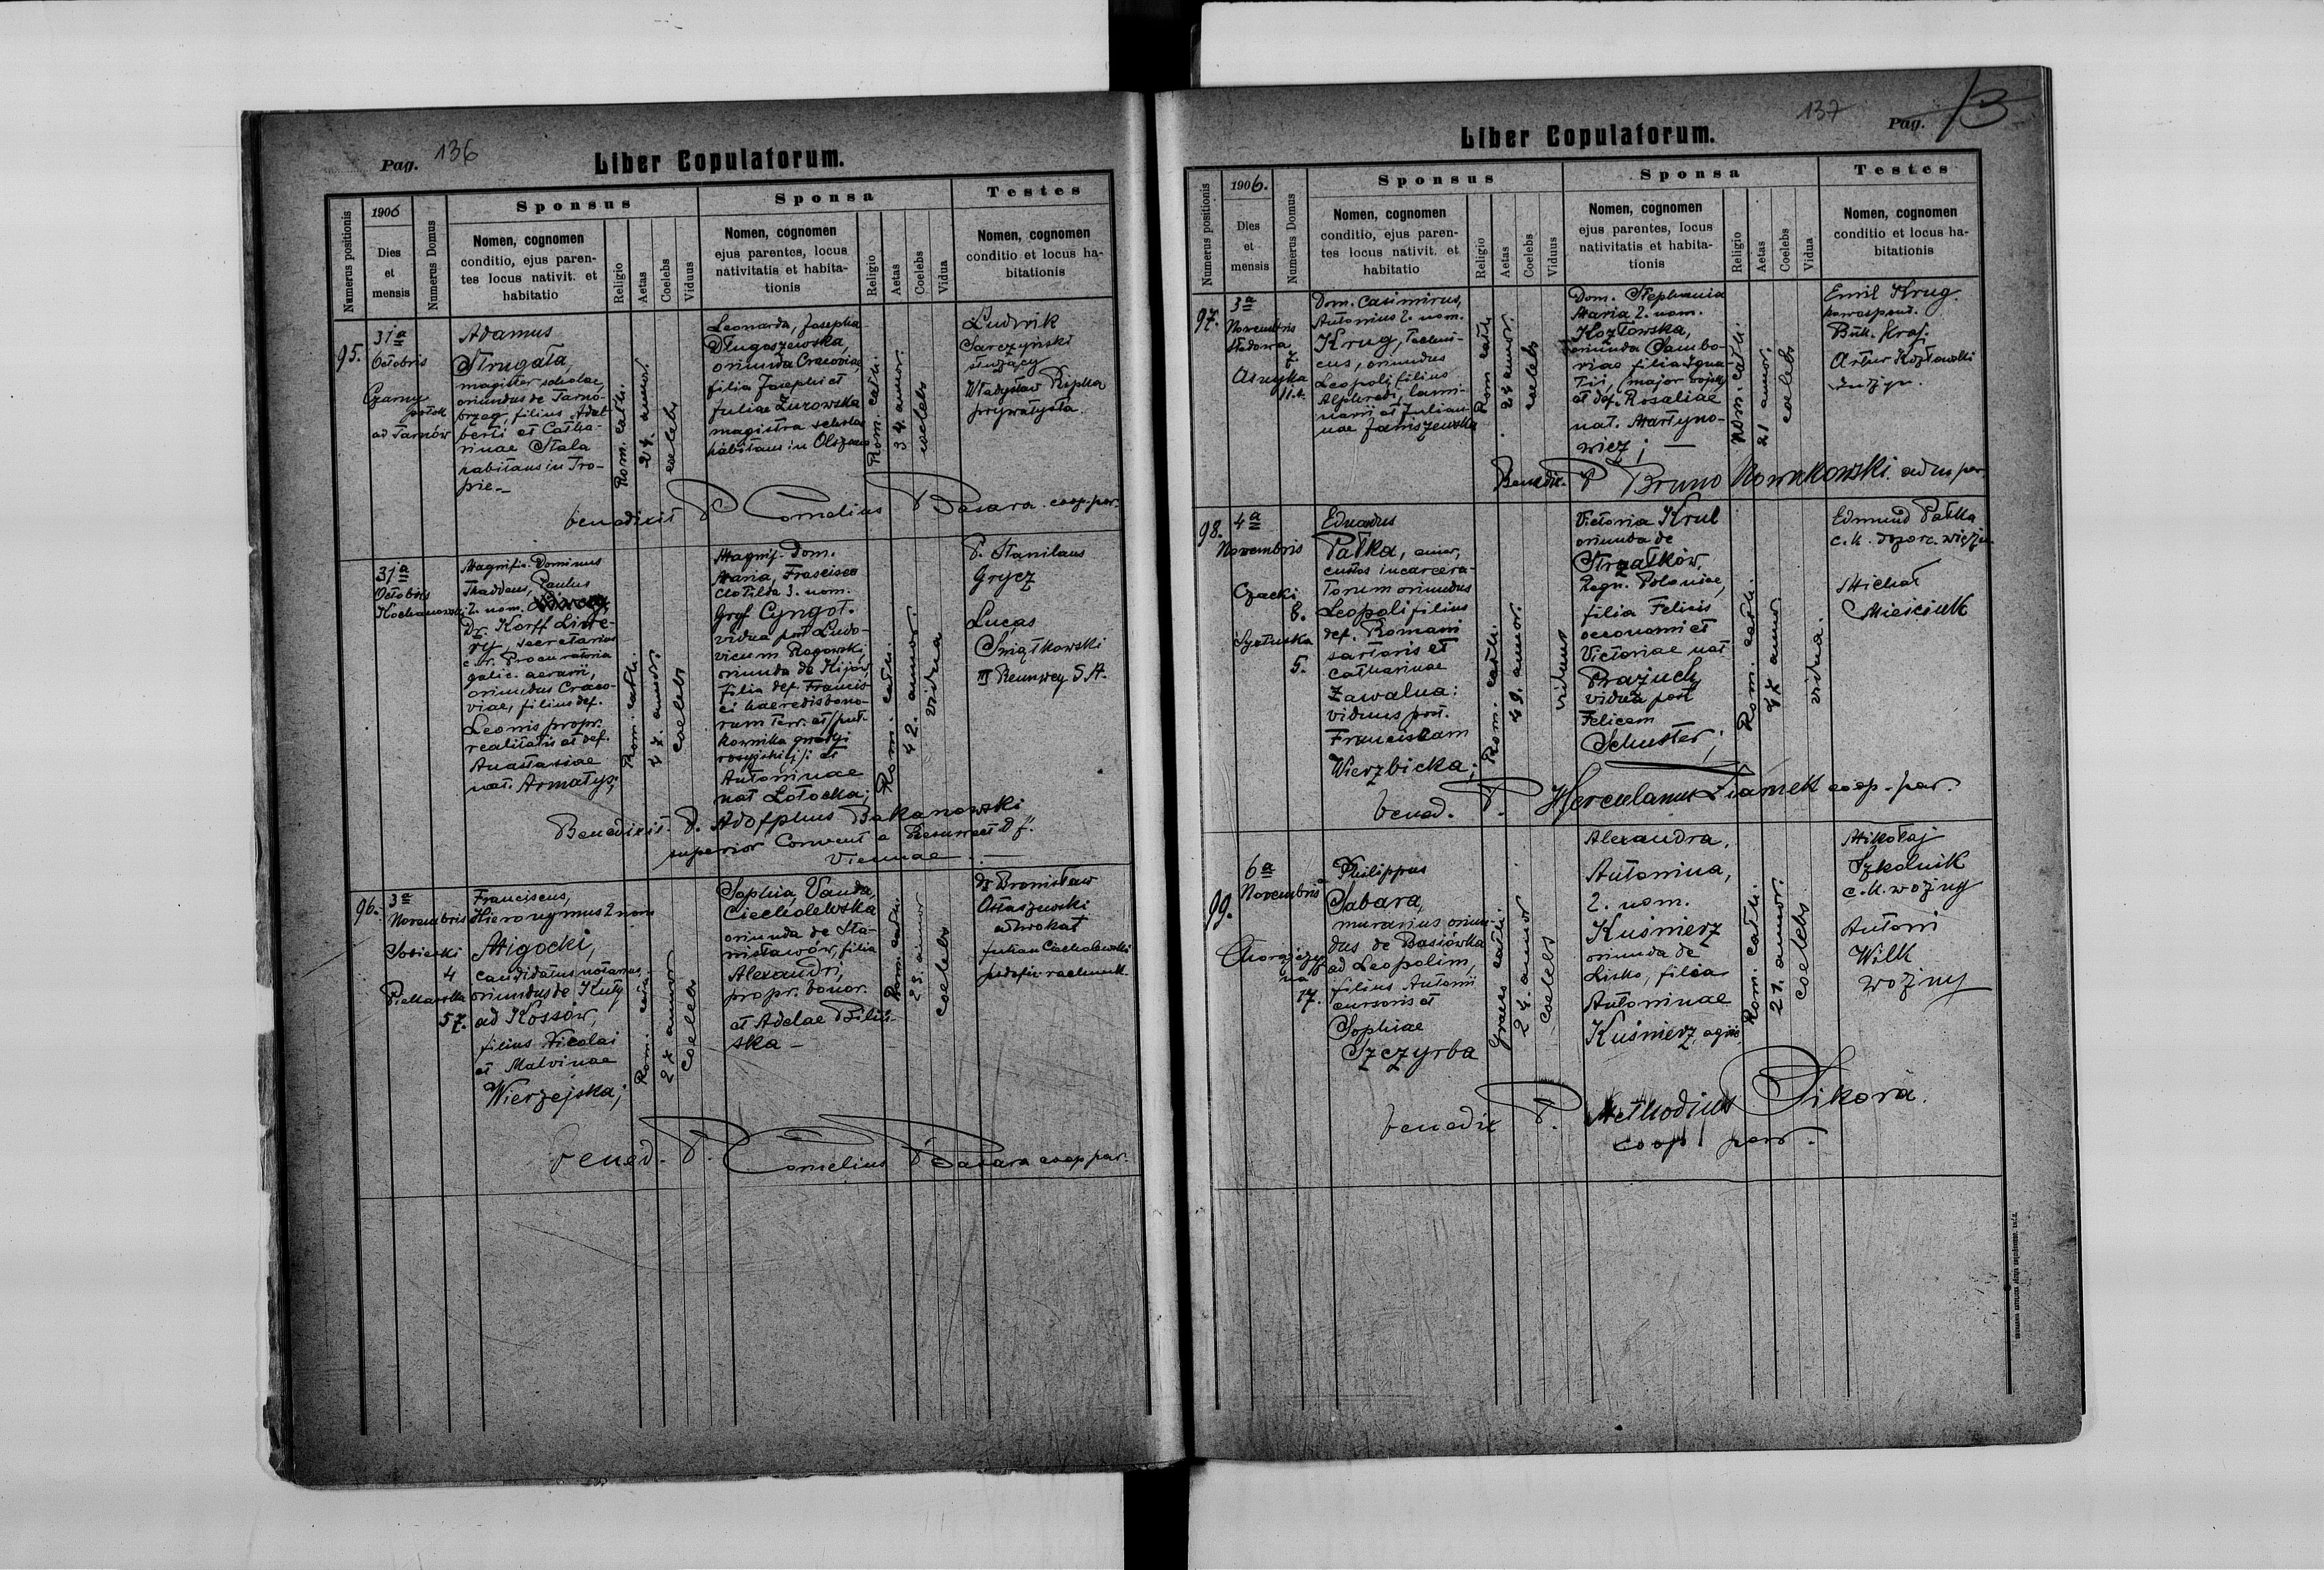 Pag. 136
Liber Copulatorum.
Numerus positionis
1906
Dies
et
mensis
Numerus Domus
Sponsus
Nomen, cognomen
conditio, ejus paren-
tes locus nativit. et
habitatio
Religio
Aetas
Coelebs
Viduus
Sponsa
Nomen, cognomen
ejus parentes, locus
nativitatis et habita-
tionis
Religio
Aetas
Coelebs
Vidua
Testes
Nomen, cognomen
conditio et locus ha-
bitationis
95.
31a
Octobris
Czarny
potok
ad Tarnów
Adamus
Strugała,
magister scholae,
oriundus de Tarno-
brzeg, filius Adal-
berti et Catha-
rinae Stala
habitans in Tro-
pie_
Rom. cath.
24. annor.
coelebs
Leonarda, Josepha
Długoszewska,
oriunda Cracoviae,
filia Josephi et
Juliae Żurowska
magistra scholae
habitans in
Rom. cath.
34. annor.
coelebs
Ludwik
Sarczyński
służący
Władysław Ripka
prywatysta.
benedixit P. Cornelius Basara coop. par.
31a
Octobris
Kochanowski
Magnific. Dominus
Thaddeus, Paulus
2. nom.
Dr. Korff
secretarius
c. r. Procuratoria
galic. aerarii,
oriundus Craco-
viae, filius def.
Leonis propr.
realitatis et def.
Anastasiae
nat. Armatys;
Rom. cath.
47. annor.
coelebs
Magnif. Dom.
Maria, Francisca
Clotilda 3. nom.
Grof Cyngot.
vidua post Ludo-
vicum Rogowski,
oriunda de Kijów,
filia def. Francis-
ci haeredis bono-
rum terr. et
kownika gwardyi
rosyjskiej: et
Antoninae
nat Łotocka;
Rom. cath.
42. annor.
vidua
P. Stanilaus
Grycz
Lucas
Swiątkowski
III Rennweg 5 A.
Benedixit P. Adolphus Bakanowski
superior Convent a Resurrect D J.
Viennae.
96.
3a
Novembris
Sobieski
4
Piekarska
57.
Franciscus,
Hieronymus 2 nom
Migocki,
candidatus notarius,
oriundus de Kuty
ad Kossów,
filius Nicolai
et Malvinae
Wierzejska;
Rom. cath.
27 annor
coelebs
Sophia, Vanda,
Ciecholewska
oriunda de Sta-
nisławów, filia
Alexandri,
propr. bonor.
et Adelae Biliń-
ska_
Rom. cath.
23. annor
coelebs
Dr Bronisław
Ostaszewski
adwokat
Julian Ciecholewski
bened. P. Cornelius Basara coop par.
137
Pag. 73
Liber Copulatorum.
Numerus positionis
1906.
Dies
et
mensis
Numerus Domus
Sponsus
Nomen, cognomen
conditio, ejus paren-
tes locus nativit. et
habitatio
Religio
Aetas
Coelebs
Viduus
Sponsa
Nomen, cognomen
ejus parentes, locus
nativitatis et habita-
tionis
Religio
Aetas
Coelebs
Vidua
Testes
Nomen, cognomen
conditio et locus ha-
bitationis
97.
3a
Novembris
7
Asnyka
11.a.
Dom. Casimirus,
Antonius 2. nom.
Krug, techni-
cus, oriundus
Leopoli filius
Alphredi,
et Julian-
nae Janiszewska
Rom cath
24 annor.
coelebs
Dom. Stephania
Maria 2. nom.
Kozłowska,
oriunda Sambo-
riae filia Igna-
tii, major
et def. Rosaliae
nat. Martyno-
wicz;
Rom. cath.
21 annor.
coelebs
Emil Krug.
korespond.
Buk. Kraj.
Artur Kozłowski
inżyn.
Benedix. P Bruno Nowakowski adm par
98.
4a
Novembris
Czacki
8.
Syxtuska
5.
Eduardus
Pałka,
custos incarcera-
torum oriundus
Leopoli filius
def. Romani
sartoris et
Catharinae
Zawalna:
viduus post.
Franciscam
Wierzbicka;
Rom. cath.
49. annor.
viduus
Victoria Krul
oriunda de
Strzałków,
Regn. Poloniae,
filia Felicis
oeconomi et
Victoriae nat
Prażuch
vidua post
Felicem
Schuster;
Rom. cath.
47 annor.
vidua.
Edmund Pałka
c. k. dozorc. więzien
Michał
Mieiciuk
bened. P. Herculanus Ziamek coop-par.
99.
6a
Novembris
Chorążczyz
na
17.
Philippus
Sabara,
murarius oriun-
dus de Basiówka
ad Leopolim,
filius Antonii
cursoris et
Sophiae
Szczyrba
Graec cath.
24. annor
coelebs
Alexandra,
Antonina,
2. nom.
Kuśnierz
oriunda de
Lisko, filia
Antoninae
Kuśnierz,
Rom. cath.
21. annor.
coelebs
Mikołaj
Szkolnik
c. k. woźny
Antoni
Wilk
woźny
benedix P. Methodius Sikora.
coop par.